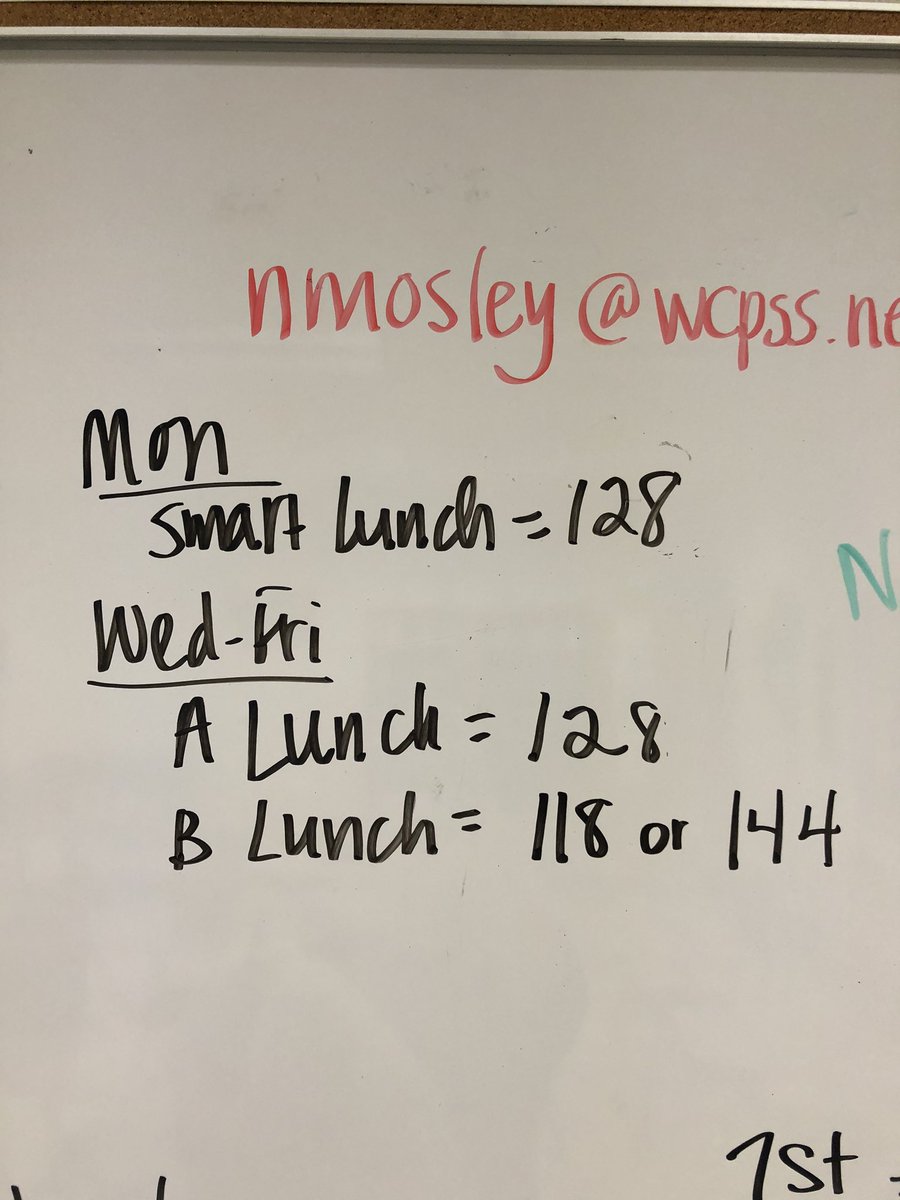 nmosley@wcpss.ne
Mon
Smart Lunch = 128
N
Wed-Fri
A Lunch = 128
B Lunch = 118 or 144
1st